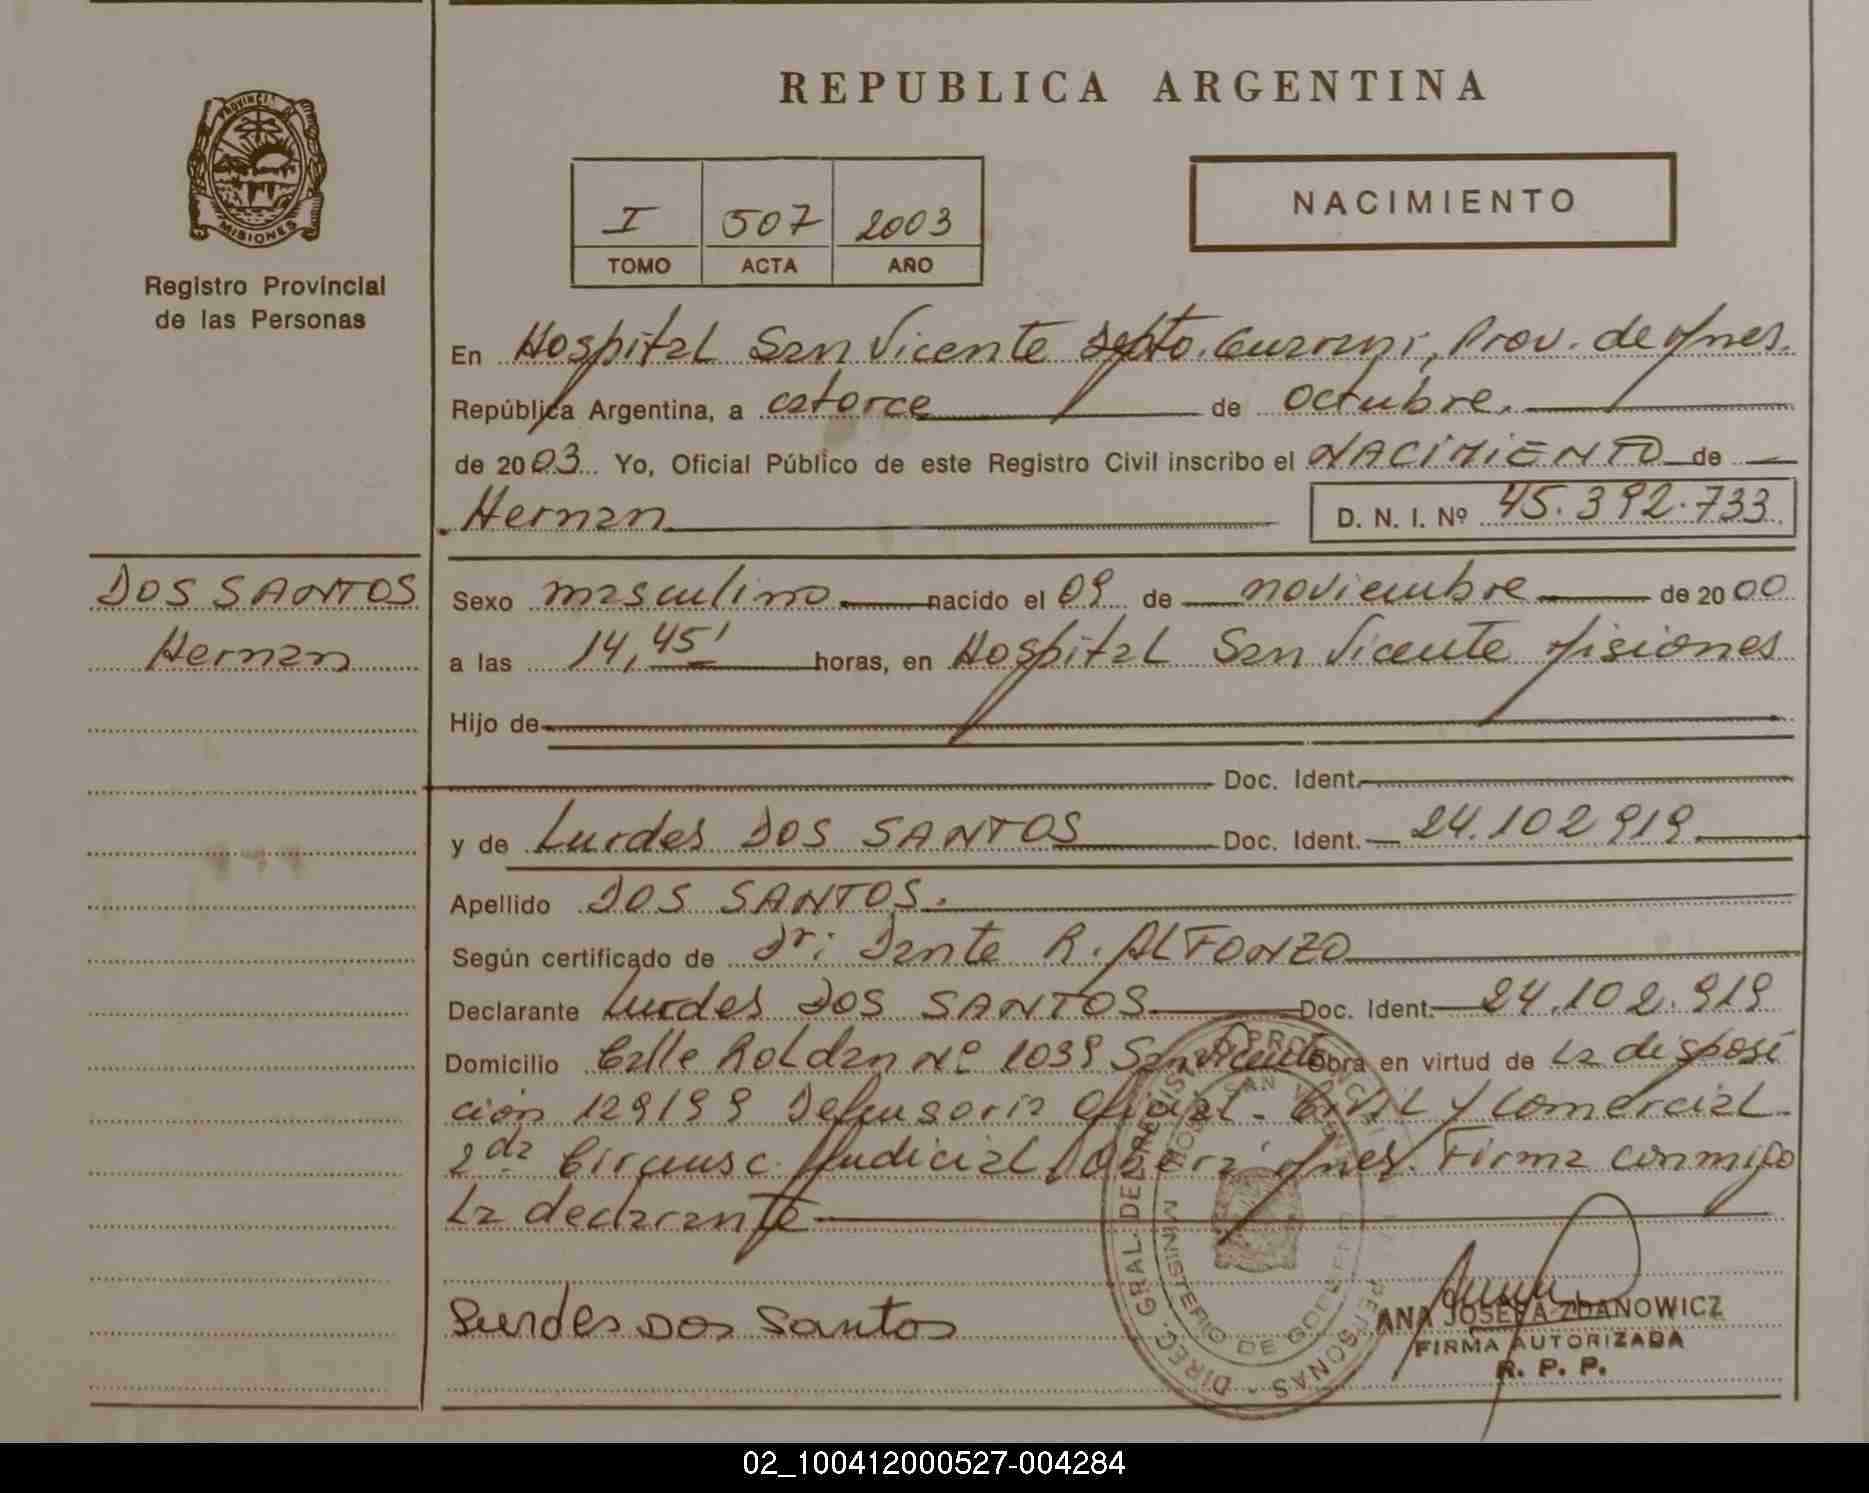 REPUBLICA ARGENTINA
PROVINCIA
MISIONES
Registro Provincial
de las Personas
I 507 2003
TOMO ACTA AÑO
NACIMIENTO
En Hospital San Vicente Depto. Guarani, Prov. de Mnes.
República Argentina, a catorce de octubre.
de 2003 Yo, Oficial Público de este Registro Civil inscribo el NACIMIENTO de
Hernan D. N. I. Nº 45.392.733
DOS SANTOS
Hernan
Sexo masculino nacido el 09 de noviembre de 2000
a las 14,45' horas, en Hospital San Vicente Misiones
Hijo de
Doc. Ident.
y de Lurdes DOS SANTOS Doc. Ident. 24.102.919
Apellido DOS SANTOS.
Según certificado de Dr: Dante R. ALFONZO
Declarante Lurdes DOS SANTOS Doc. Ident. 24.102.919
Domicilio Calle Roldan Nº 1039 San Vicente Obra en virtud de La disposi
ción 129/99 Defensoria Oficial - Civil y Comercial
2da Circunsc. Judicial Obera Mnes. Firma conmigo
La declarante
Lurdes Dos Santos
ANA JOSEFA ZDANOWICZ
FIRMA AUTORIZADA
R. P. P.
DIREC. GRAL. DEL REGISTRO PROVINCIAL PERSONAS
MINISTERIO DE GOBIERNO
02_100412000527-004284